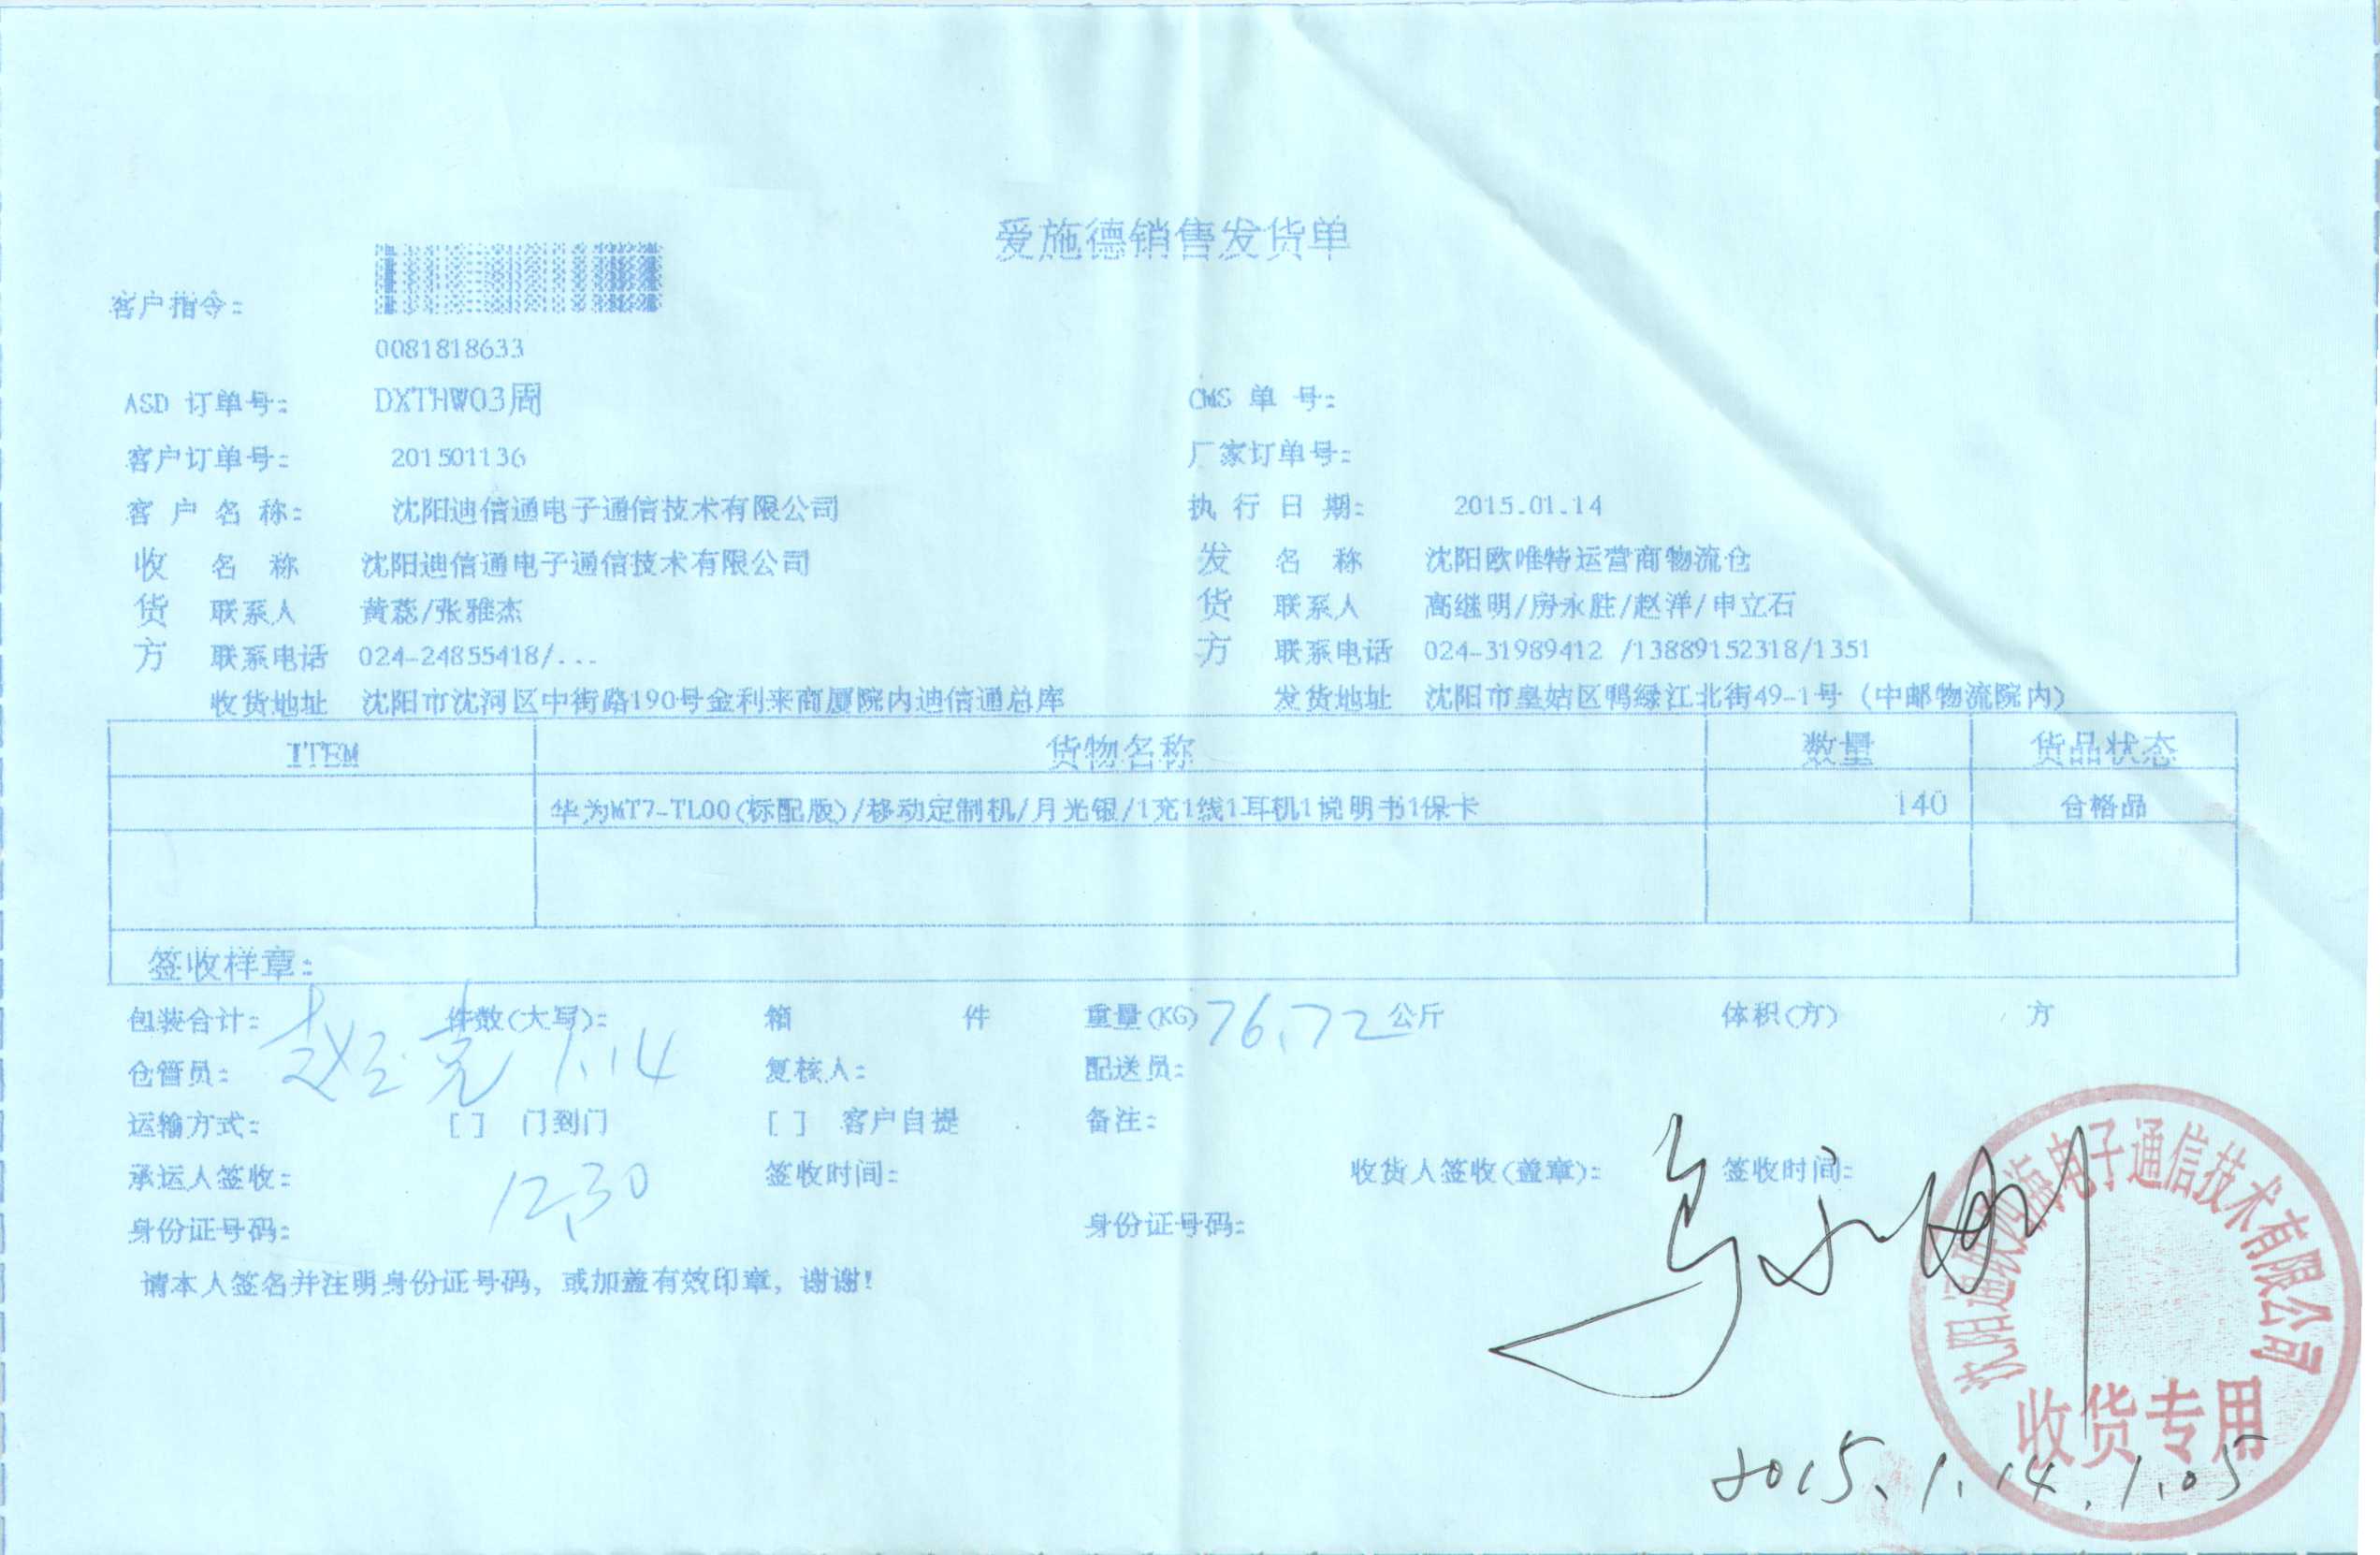 爱施德销售发货单
客户指令:
0081818633
ASD 订单号: DXTHW03周 CMS 单 号:
客户订单号: 201501136 厂家订单号:
客 户 名 称: 沈阳迪信通电子通信技术有限公司 执 行 日 期: 2015.01.14
收 名 称 沈阳迪信通电子通信技术有限公司 发 名 称 沈阳欧唯特运营商物流仓
货 联系人 黄蕊/张雅杰 货 联系人 高继明/房永胜/赵洋/申立石
方 联系电话 024-24855418/... 方 联系电话 024-31989412 /13889152318/1351
收货地址 沈阳市沈河区中街路190号金利来商厦院内迪信通总库 发货地址 沈阳市皇姑区鸭绿江北街49-1号 (中邮物流院内)
ITEM 货物名称 数量 货品状态
华为MT7-TL00(标配版)/移动定制机/月光银/1充1线1耳机1说明书1保卡 140 合格品
签收样章:
包装合计: 件数(大写): 箱 件 重量(KG) 76.72 公斤 体积(方) 方
仓管员: 1.14 复核人: 配送员:
运输方式: [ ] 门到门 [ ] 客户自提 备注:
承运人签收: 12.30 签收时间: 收货人签收(盖章): 签收时间:
身份证号码: 身份证号码:
请本人签名并注明身份证号码, 或加盖有效印章, 谢谢!
电子通信技术有限公司
收货专用
2015.1.14.1.05